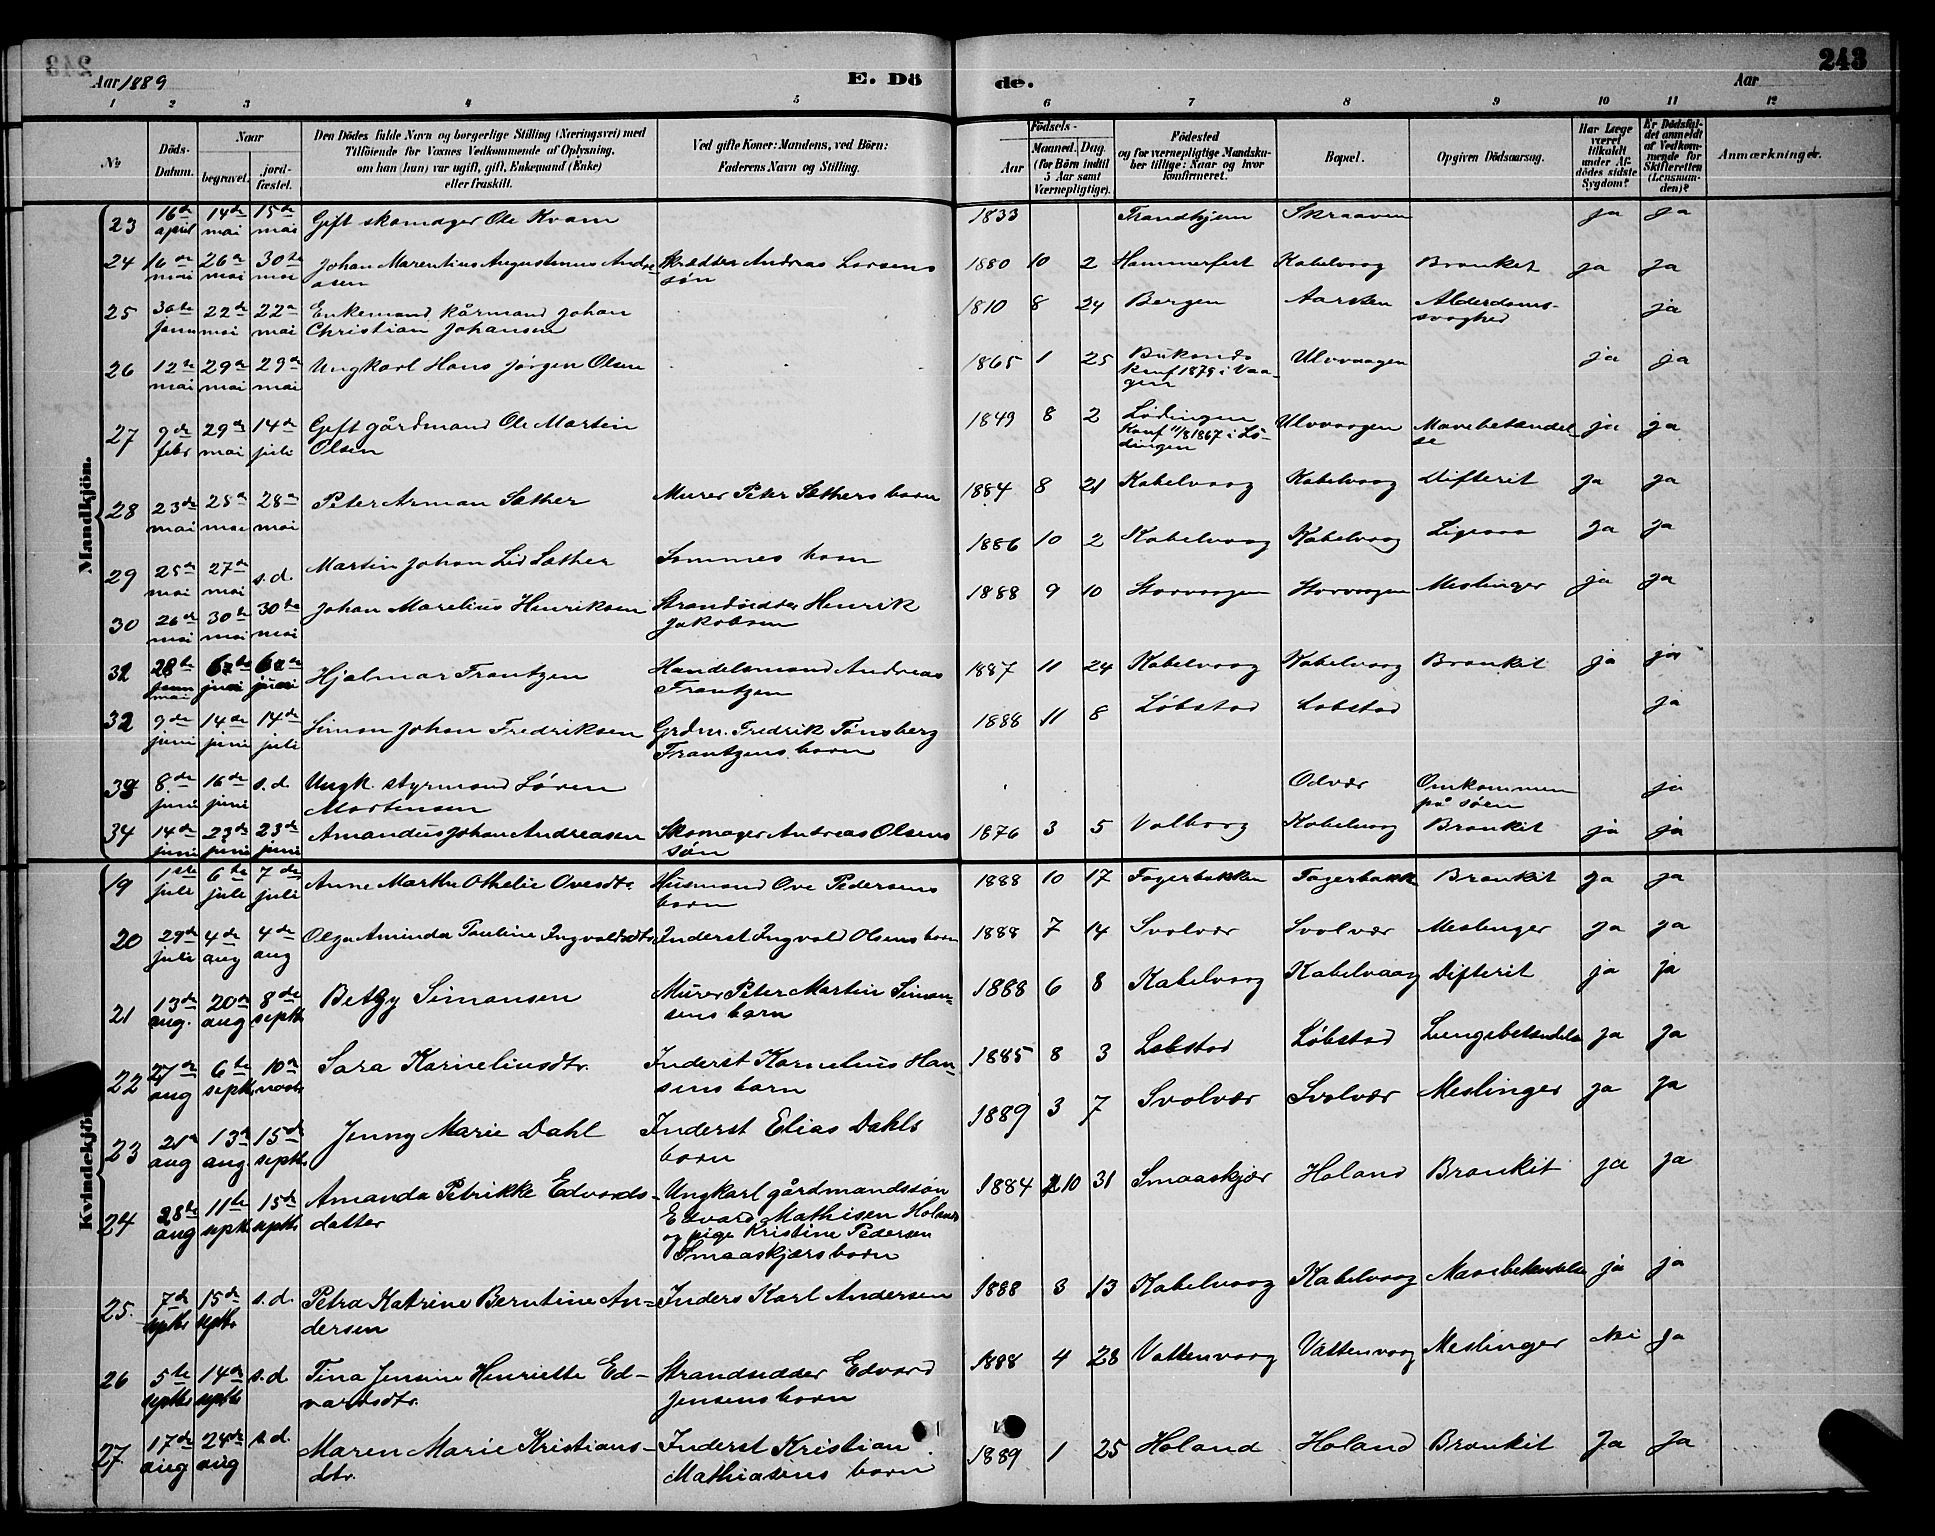 243
Aar 1889
E. Dö
de.
Aar
243
1 2 3 4 5 6 7 8 9 10 11 12
No
Döds-
Datum.
Naar
begravet.
jord-
fæstet.
Den Dödes fulde Navn og borgerlige Stilling (Næringsvei) med
Tilföiende for Voxnes Vedkommende af Oplysning,
om han (hun) var ugift, gift, Enkemand (Enke)
eller fraskilt.
Ved gifte Koner: Mandens, ved Börn:
Faderens Navn og Stilling.
Födsels-
Aar
Maaned. Dag.
(for Börn indtil
5 Aar samt
Værnepligtige).
Födested
og for værnepligtige Mandska-
ber tillige: Naar og hvor
konfirmeret.
Bopæl.
Opgiven Dödsaarsag.
Har Læge
været
tilkaldt
under Af-
dödes sidste
Sygdom?
Er Dödsfal-
det anmeldt
af Vedkom-
mende for
Skifteretten
(Lensman-
den)?
Anmærkninger.
Mandkjön.
23 16de april 14de mai 15de mai Gift skomager Ole Kvam 1833 Trondhjem Skraaven ja ja
24 16de mai 26de mai 30te mai Johan Marentius Augustinus Andre- Skrædder Andreas Larsens 1880 10 2 Hammerfest Kabelvaag Bronkit ja ja
asen søn
25 30te 22de mai 22de mai Enkemand kårmand Johan 1810 8 24 Bergen Aarsten Alderdoms- ja
Christian Johansen svaghed
26 12te mai 29de mai 29de mai Ungkarl Hans Jørgen Olsen 1865 1 25 Ulvvaagen ja ja
Konf 1879 i Vaa-
gen
27 9de febr 29de mai 14de juli Gift gårdmand Ole Martin 1849 8 2 Lødingen Ulvvaagen Mavebetændel- ja ja
Olsen Konf 11/8 1867 i Lø- se
dingen
28 23de mai 28de mai 28de mai Peter Arman Sæther Murer Peter Sæthers barn 1884 8 21 Kabelvaag Kabelvaag Difterit ja ja
29 25de mai 27de mai s.d. Martin Johan Lid Sæther Sammes barn 1886 10 2 Kabelvaag Kabelvaag Ligesaa ja ja
30 26de mai 30te mai 30te mai Johan Marelius Henriksen Strandsidder Henrik 1888 9 10 Storvaagen Storvaagen Meslinger ja ja
Jakobsen
31 28de mai 6te juni juni Hjalmar Frantzen Handelsmand Andreas 1887 11 24 Kabelvaag Kabelvaag Bronkit ja ja
Frantzen
32 9de juni 14de juni 14de juli Simon Johan Fredriksen Grdm. Fredrik Tønsberg 1888 11 8 Løbstad Løbstad ja
Frantzens barn
33 8de juni 16de juni s.d. Ungk. styrmand Søren Odvær Omkommen ja
Mortensen på søen
34 14de juni 23de juni 23de juni Amandus Johan Andreasen Skomager Andreas Olsens 1876 3 5 Valborg Kabelvaag Bronkit ja ja
søn
Kvindekjön.
19 1ste juli 6te juli 7de juli Anne Marthe Othelie Ovesdtr. Husmand Ove Pedersens 1888 10 17 Fagerbakken Fagerbakk Bronkit ja ja
barn
20 29de juli 4de aug 4de aug Olga Aminda Pauline Ingvaldsdtr Inderst Ingvald Olsens barn 1888 7 14 Svolvær Svolvær Meslinger ja ja
21 13de aug. 20de aug 8de septbr Betzy Simonsen Murer Peter Martin Simon- 1888 6 8 Kabelvaag Kabelvaag Difterit ja ja
sens barn
22 27de aug 6te septbr 10de novbr Sara Korneliusdtr. Inderst Kornelius Han- 1885 8 3 Løbstad Løbstad Lungebetændelse ja ja
sens barn
23 21de aug 13de aug. 15de septbr Jenny Marie Dahl Inderst Elias Dahls 1889 3 7 Svolvær Svolvær Meslinger ja ja
barn
24 28de aug 11te septbr 15de septbr Amanda Petrikke Edvards- Ungkarl gårdmandssøn 1884 10 31 Smaaskjær Holand Bronkit ja ja
datter Edvard Mathisen Holand
og pige Kristine Pedersen
Smaaskjærs barn
25 7de septbr 15de septbr s.d. Petra Katrine Berntine An- Inders Karl Andersen 1888 3 13 Kabelvaag Kabelvaag Mavebetændelse ja ja
dersen
26 5te septbr 14de septbr s.d. Tina Jensine Henriette Ed- Strandsidder Edvard 1888 4 28 Vattenvaag Vattenvaag Meslinger Nei ja
vardsdtr. Jensens barn
27 17de aug 24de aug s.d. Maren Marie Kristians- Inderst Kristian 1889 1 25 Holand Holand Bronkit Ja Ja
dtr. Mathiasens barn